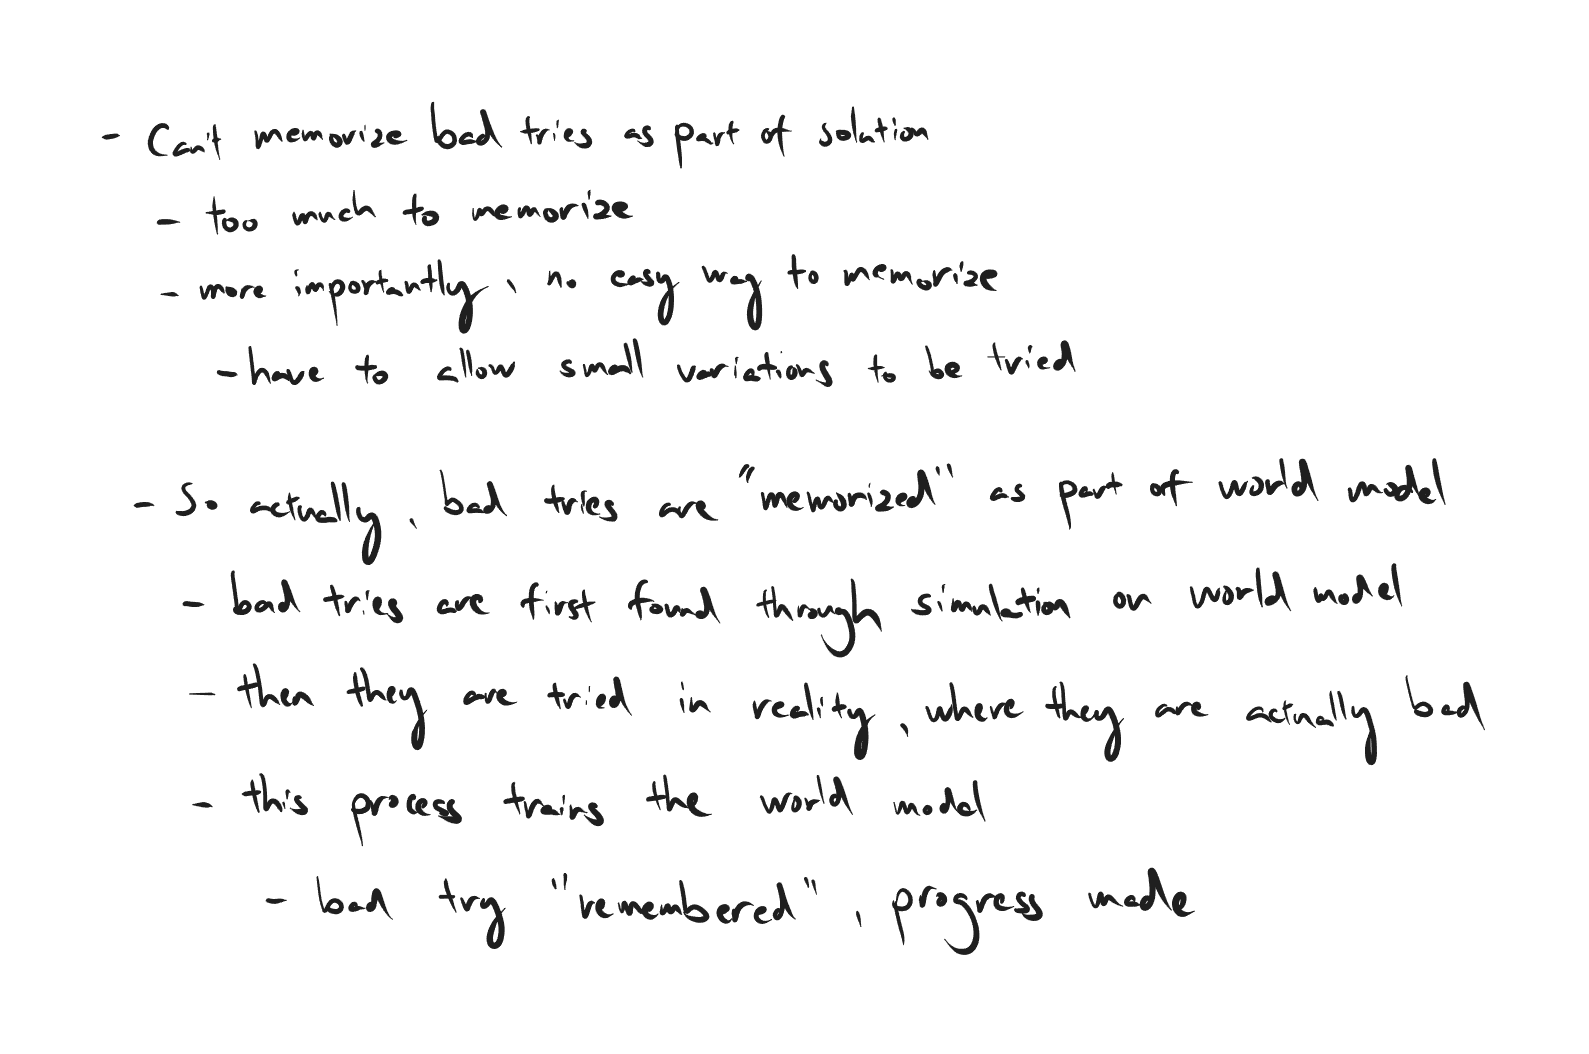 - Can't memorize bad tries as part of solution
- too much to memorize
- more importantly, no easy way to memorize
- have to allow small variations to be tried
- So actually, bad tries are "memorized" as part of world model
- bad tries are first found through simulation on world model
- then they are tried in reality, where they are actually bad
- this process trains the world model
- bad try "remembered", progress made